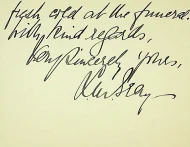 fresh cold at the funeral.
With kind regards,
Very sincerely yours,